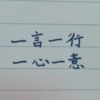 一言一行
一心一意